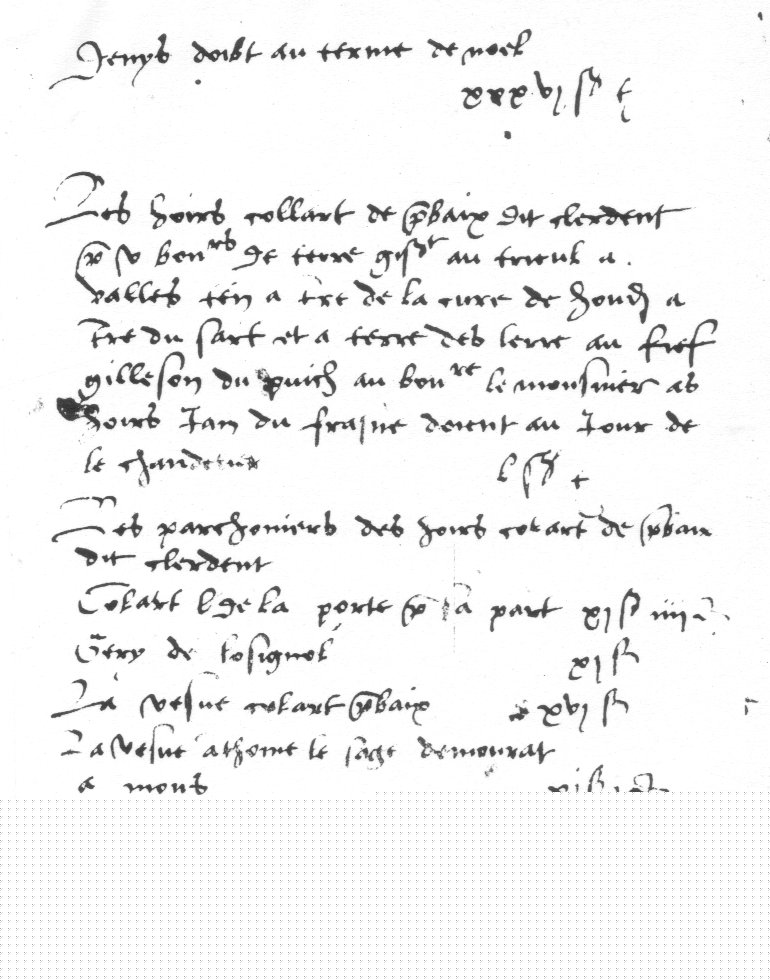 Jenys doibt au terme de noel
xxxvj s t
Les hoirs collart de pbaix dit clerdent
p v bonrs de terre gist au trieul a
valles ten a tre de la cure de houd a
tre du sart et a terre des lerre au fief
gilleson du puich au bonre le monsnier as
hoirs Jan du fraisne doient au Jour de
le chandeler l s t
Les parchoniers des hoirs colart de pbaix
dit clerdent
Colart l de la porte p sa part xj s iiij d
Gery de losignol xj s
La vesue colart pbaix xvj s
La vesue athome le sage demourat
a mons xj s